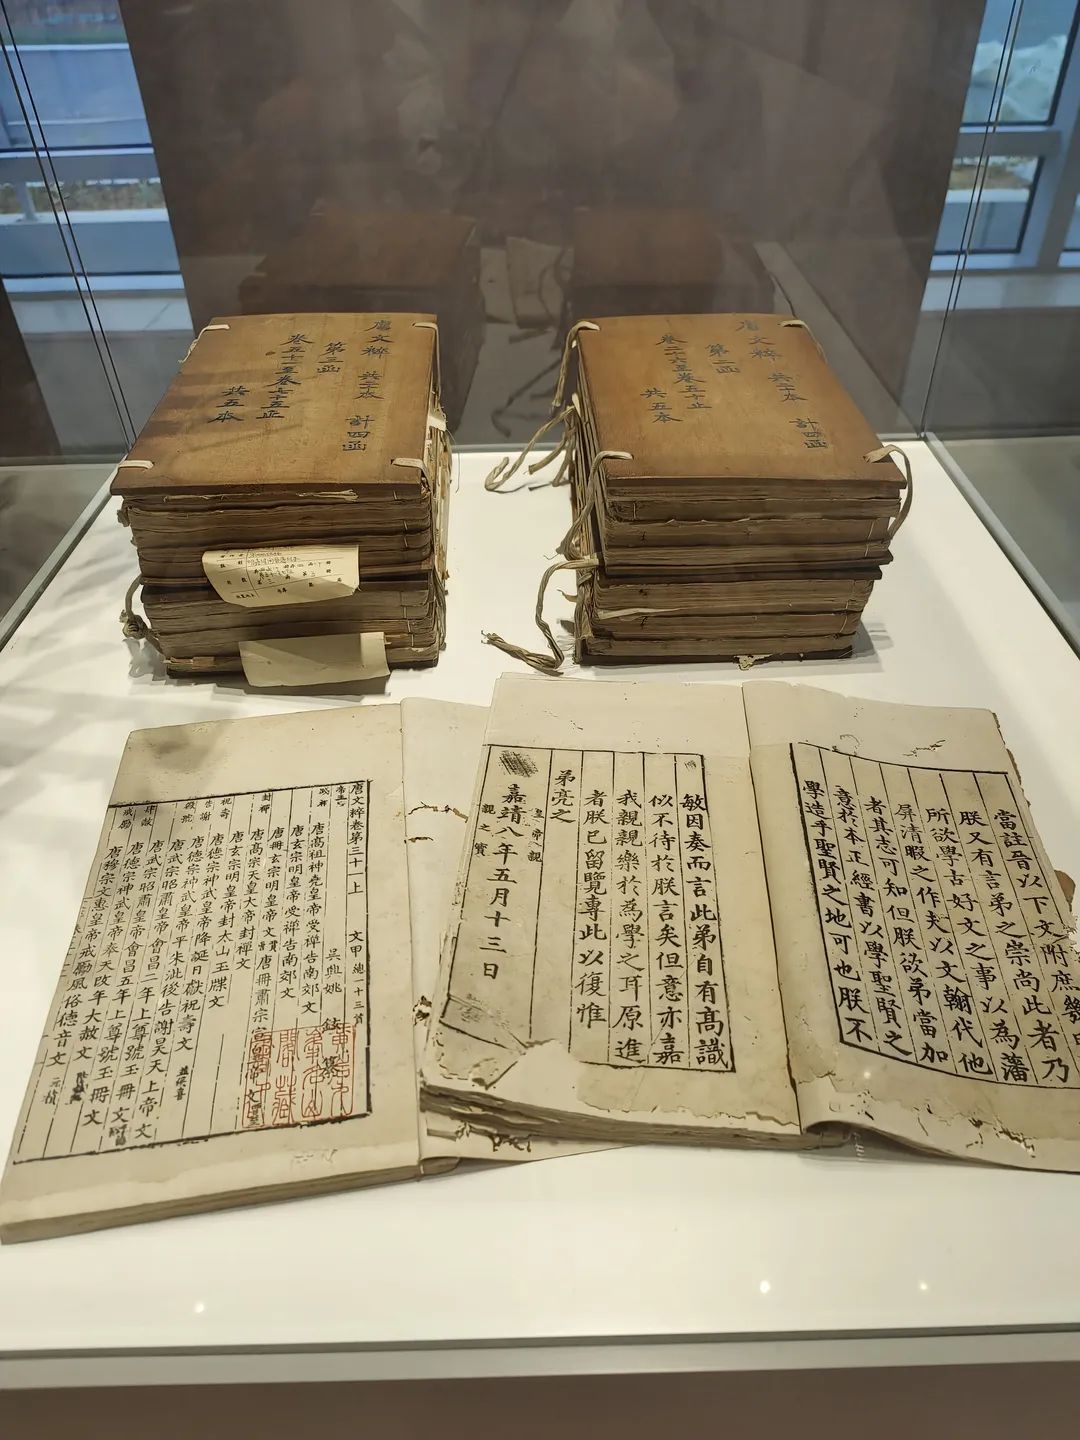 唐文粹 共二十本 計四函
第三函
卷五十一至卷七十五止
共五本
唐文粹 共二十本 計四函
第二函
卷二十六至卷五十止
共五本
當註晉以下文附庶幾
朕又有言弟之崇尚此者乃
所欲學古好文之事以為藩
屏清暇之作夫以文翰代他
者其志可知但朕欲弟當加
意於本正經書以學聖賢之
學造乎聖賢之地可也朕不
敏因奏而言此弟自有高識
似不待於朕言矣但意亦嘉
我親親樂於為學之耳原進
者朕已留覽專此以復惟
弟亮之
皇帝親
嘉靖八年五月十三日
親之寶
唐文粹卷第三十一上 文甲 總一十三首
吳興姚 鉉 纂
唐高祖神堯皇帝受禪告南郊文
唐玄宗明皇帝受禪告南郊文
唐冊玄宗明皇帝文 唐冊肅宗
封禪
唐高宗天皇大帝封禪文
唐玄宗明皇帝封太山玉牒文
祝壽
唐德宗神武皇帝降誕日獻祝壽文
告謝
唐德宗神武皇帝平朱泚後告謝昊天上帝文
唐武宗昭肅皇帝會昌二年上尊號玉冊文
唐武宗昭肅皇帝會昌五年上尊號玉冊文
肆赦
唐德宗神武皇帝奉天改年大赦文
戒勵
唐穆宗文惠皇帝戒勵風俗德音文 元稹